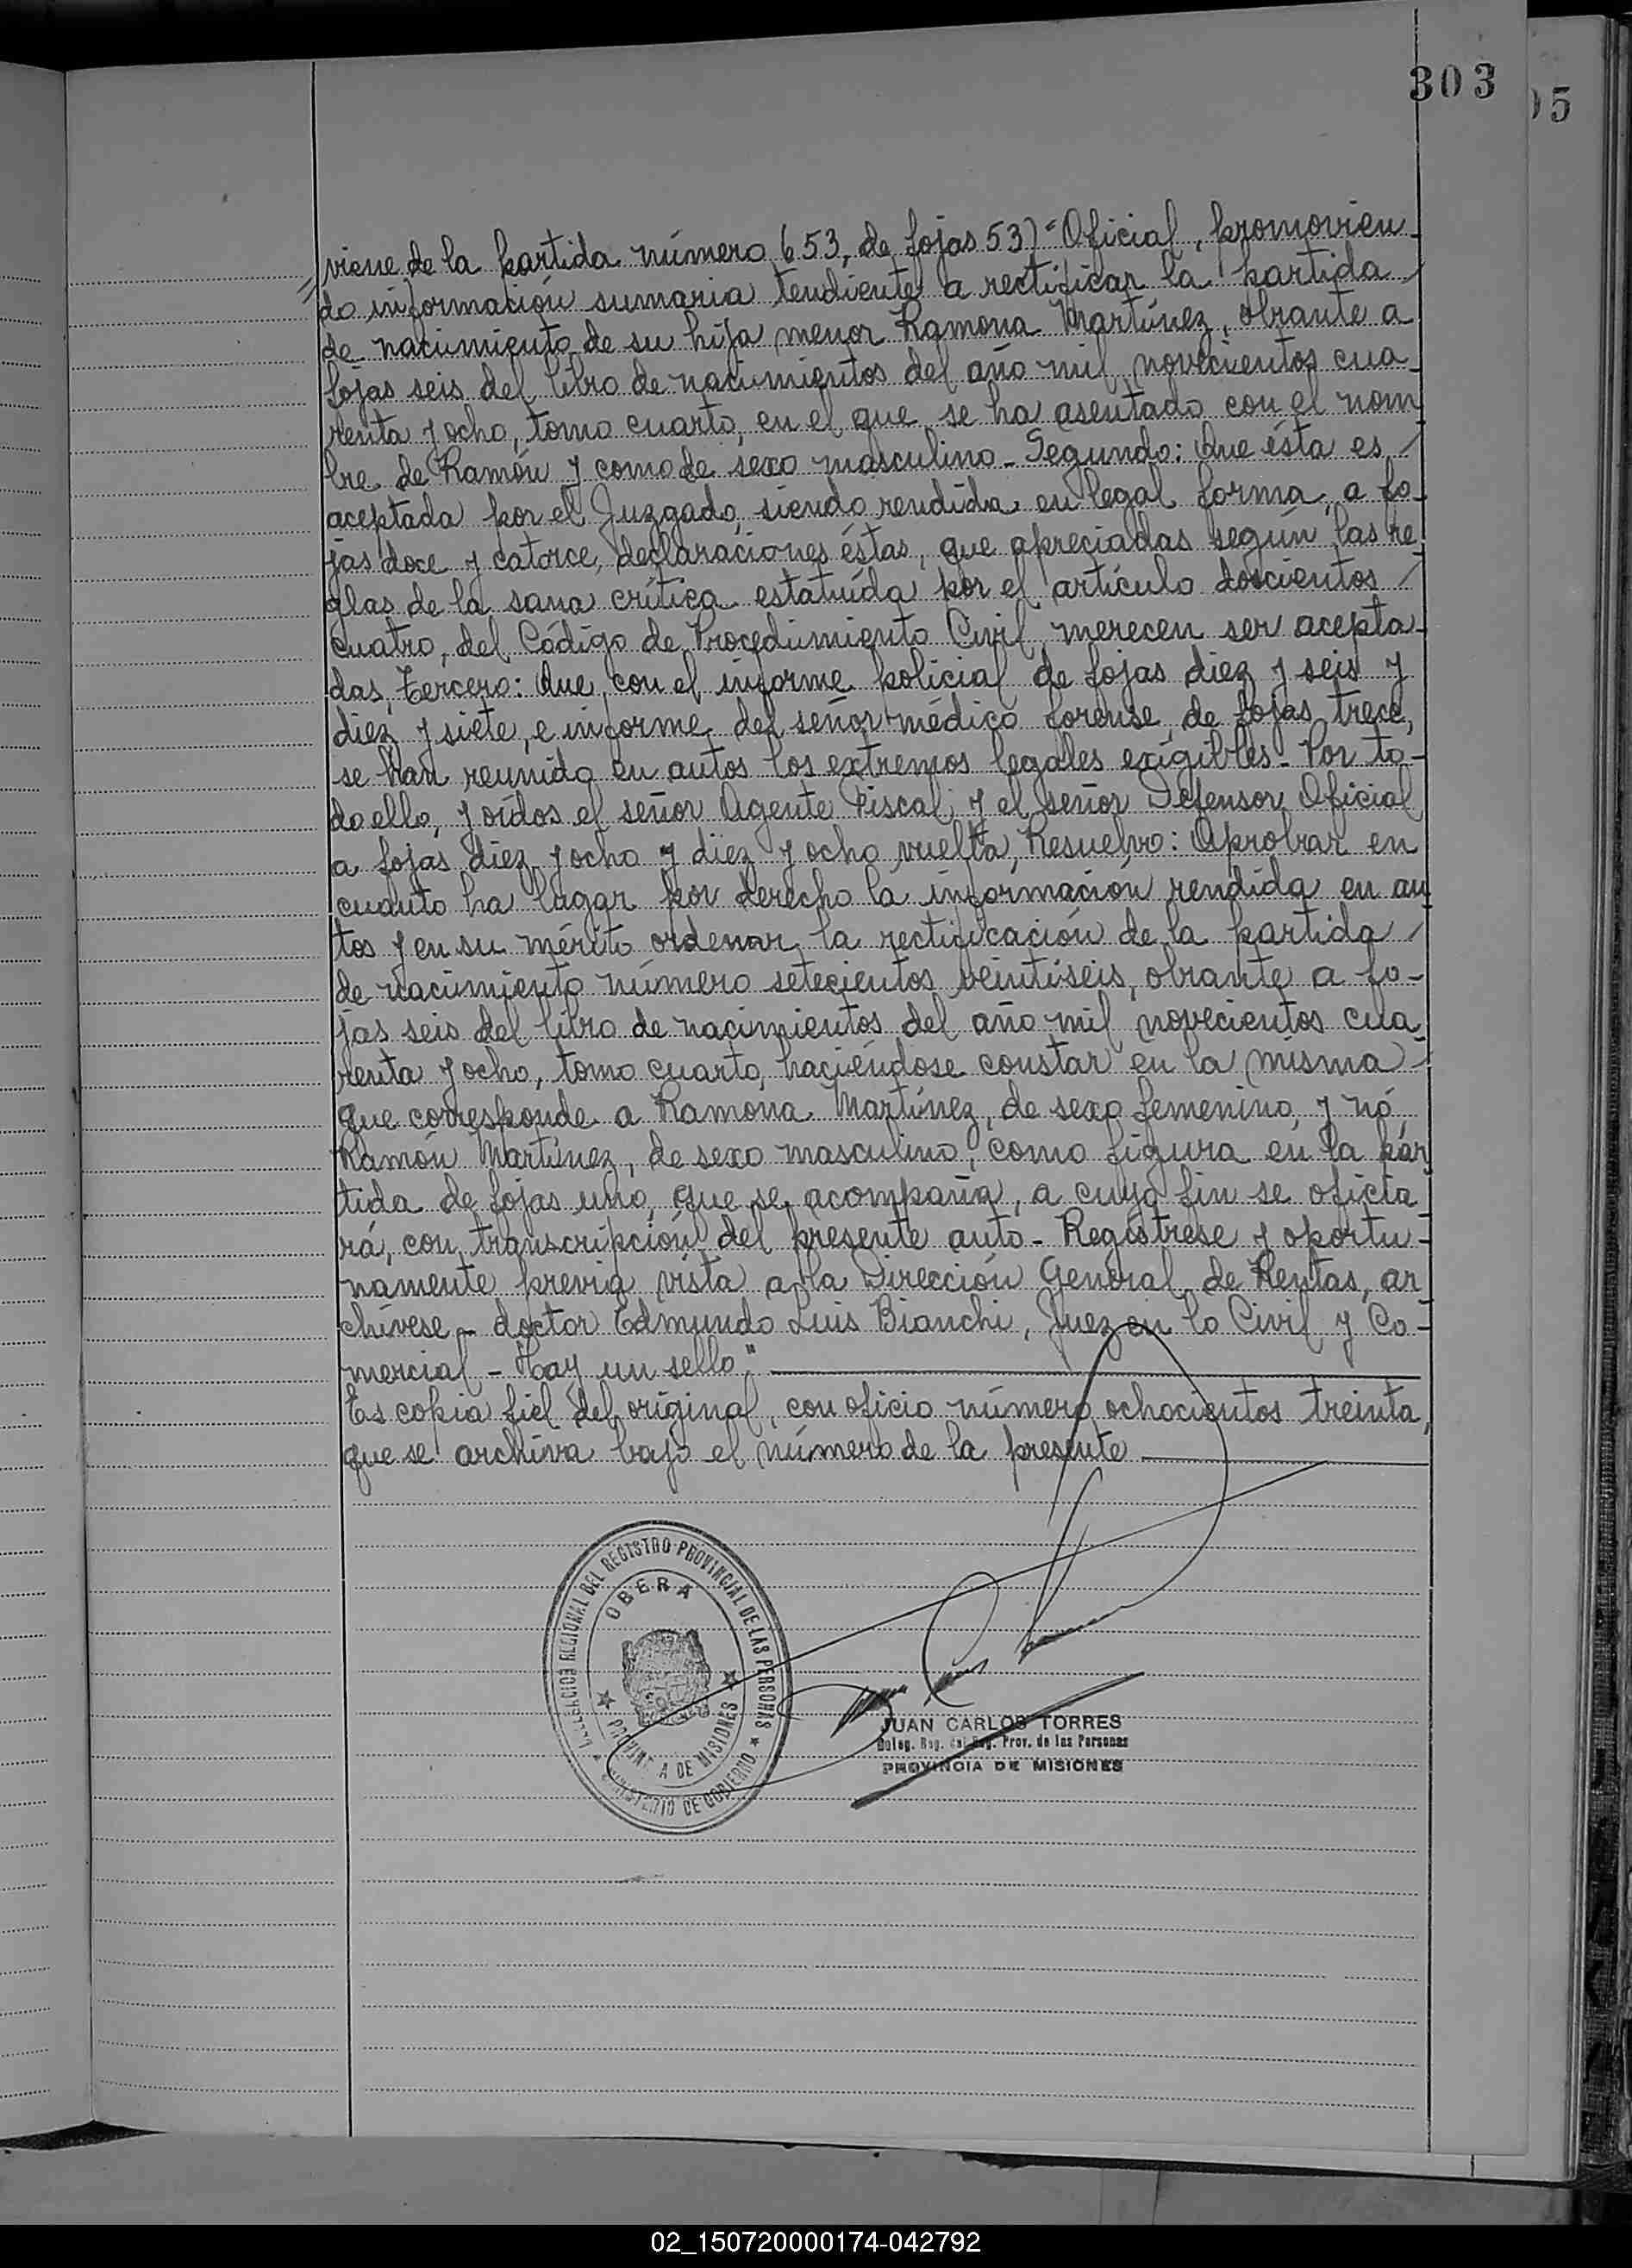 303
05
viene de la partida número 653, de fojas 53)-Oficial, promovien-
do información sumaria tendiente a rectificar la partida /
de nacimiento de su hija menor Ramona Martínez, obrante a
fojas seis del libro de nacimientos del año mil novecientos cua-
renta y ocho, tomo cuarto, en el que se ha asentado con el nom-
bre de Ramón y como de sexo masculino - Segundo: Que ésta es /
aceptada por el Juzgado, siendo rendida en legal forma, a fo-
jas doce y catorce, declaraciones éstas, que apreciadas según las re-
glas de la sana crítica estatuída por el artículo doscientos /
cuatro, del Código de Procedimiento Civil, merecen ser acepta-
das, Tercero: Que, con el informe policial de fojas diez y seis y
diez y siete, e informe del señor médico forense, de fojas trece,
se han reunido en autos los extremos legales exigibles - Por to-
do ello, y oídos el señor Agente Fiscal y el señor Defensor Oficial
a fojas diez y ocho y diez y ocho vuelta, Resuelvo: Aprobar en
cuanto ha lugar por derecho la información rendida en au-
tos y en su mérito ordenar la rectificación de la partida /
de nacimiento número setecientos veintiseis, obrante a fo-
jas seis del libro de nacimientos del año mil novecientos cua-
renta y ocho, tomo cuarto, haciéndose constar en la misma /
que corresponde a Ramona Martínez, de sexo femenino y nó
Ramón Martínez, de sexo masculino, como figura en la par-
tida de fojas uno, que se acompaña, a cuyo fin se oficia-
rá, con transcripción del presente auto - Regístrese y oportu-
namente previa vista a la Dirección General de Rentas, ar-
chívese - doctor Edmundo Luis Bianchi, Juez en lo Civil y Co-
mercial - Hay un sello"
Es copia fiel del original, con oficio número ochocientos treinta,
que se archiva bajo el número de la presente
DELEGACION REGIONAL DEL REGISTRO PROVINCIAL DE LAS PERSONAS
OBERA
PROVINCIA DE MISIONES
MINISTERIO DE GOBIERNO
JUAN CARLOS TORRES
Deleg. Reg. del Reg. Prov. de las Personas
PROVINCIA DE MISIONES
02_150720000174-042792